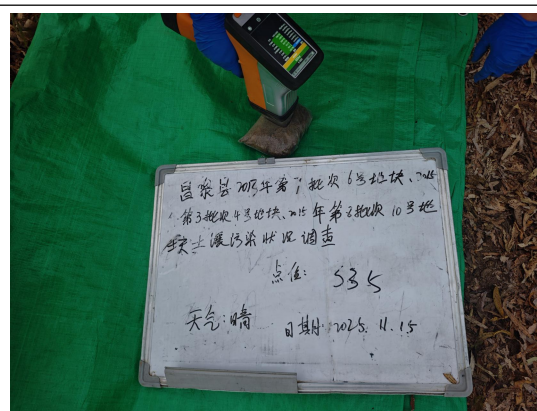 昌黎县2015年第1批次6号地块、2015
年第3批次4号地块、2015年第2批次10号地
块土壤污染状况调查
点位: S35
天气:晴 日期: 2025.11.15